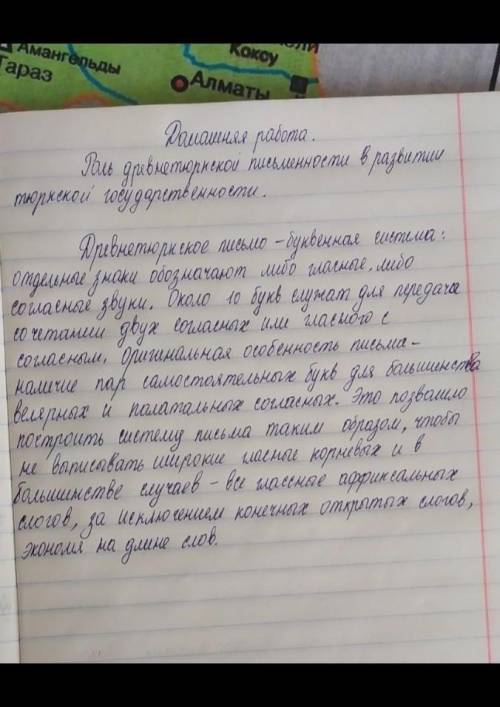 Амангельды
Тараз
Коксу
Алматы
Домашняя работа.
Роль древнетюркской письменности в развитии
тюркской государственности.
Древнетюркское письмо - буквенная система:
отдельные знаки обозначают либо гласные, либо
согласные звуки. Около 10 букв служат для передачи
сочетании двух согласных или гласного с
согласным. Оригинальная особенность письма-
наличие пар самостоятельных букв для большинства
велярных и палатальных согласных. Это позволило
построить систему письма таким образом, чтобы
не выписывать широкие гласные корневых и в
большинстве случаев - все глассные аффиксальных
слогов, за исключением конечных открытых слогов,
экономя на длине слов.